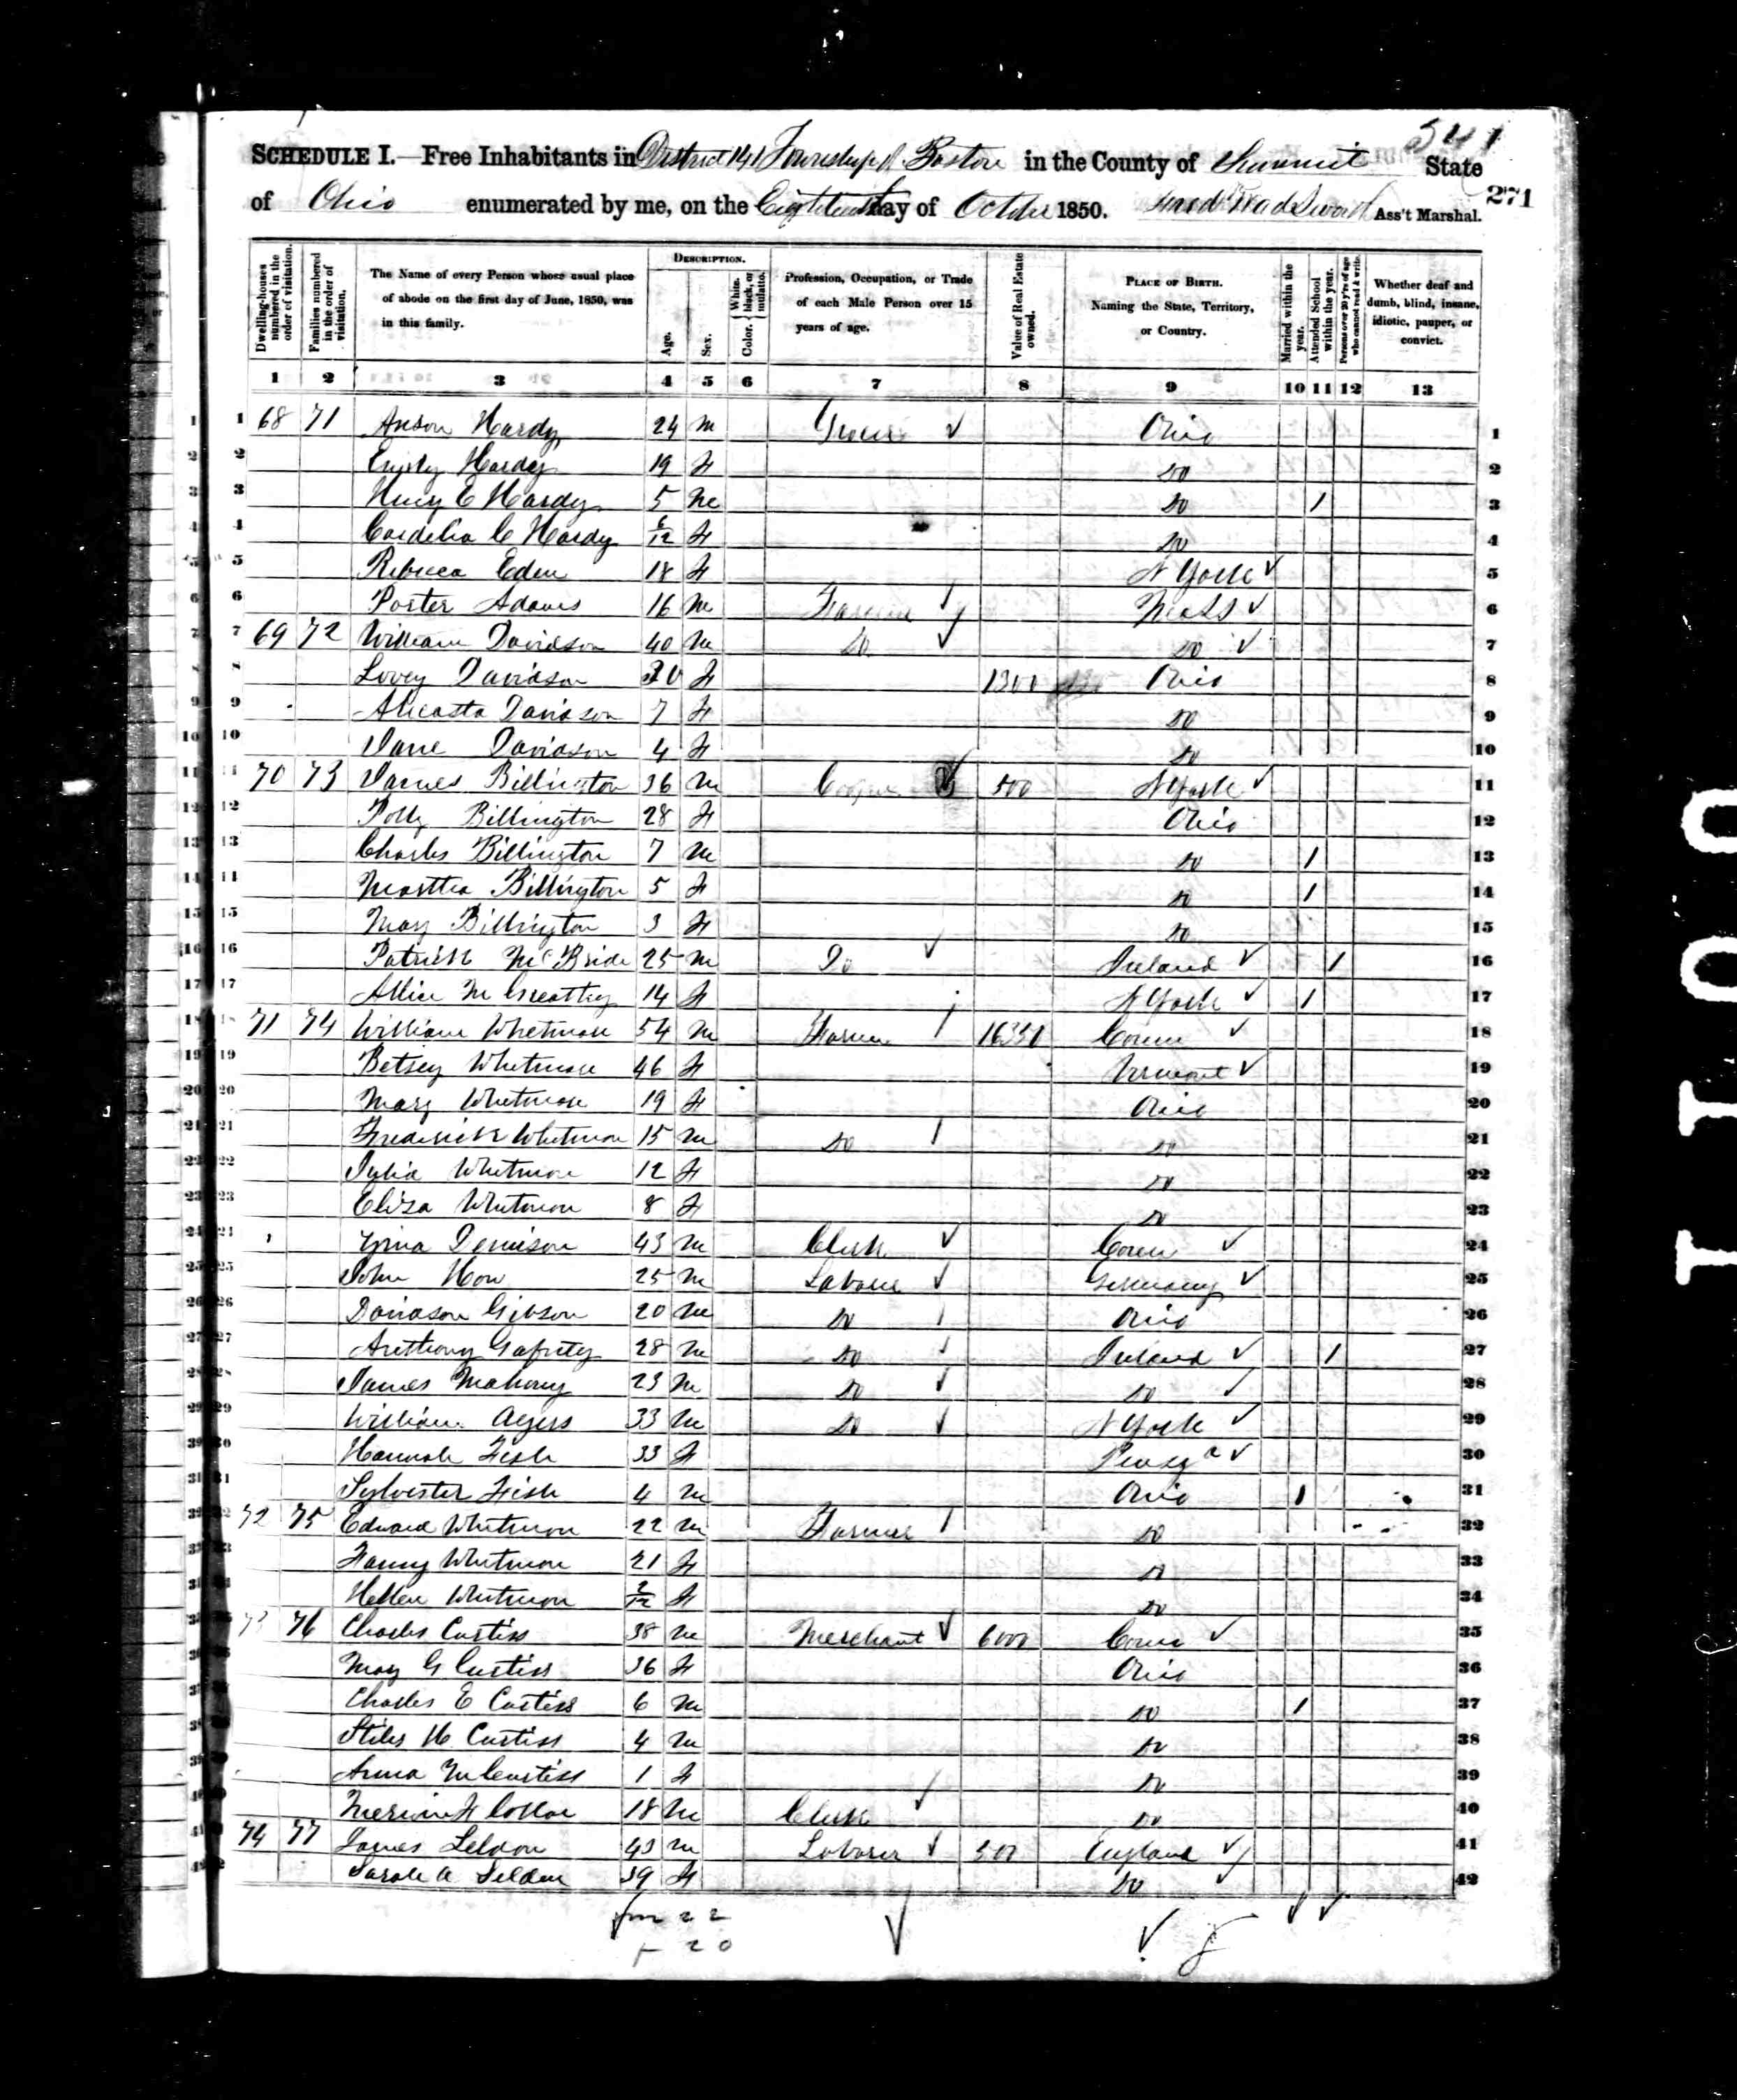 541
SCHEDULE I.—Free Inhabitants in District 141 Township of Boston in the County of Summit State
of Ohio enumerated by me, on the Eighteenth day of October 1850. Ass't Marshal. 271
Dwelling-houses numbered in the order of visitation.
Families numbered in the order of visitation.
The Name of every Person whose usual place of abode on the first day of June, 1850, was in this family.
DESCRIPTION.
Age.
Sex.
Color. White, black, or mulatto.
Profession, Occupation, or Trade of each Male Person over 15 years of age.
Value of Real Estate owned.
PLACE OF BIRTH. Naming the State, Territory, or Country.
Married within the year.
Attended School within the year.
Persons over 20 y'rs of age who cannot read & write.
Whether deaf and dumb, blind, insane, idiotic, pauper, or convict.
1 2 3 4 5 6 7 8 9 10 11 12 13
1 68 71 Anson Hardy 24 M Ohio 1
2 Emily Hardy 19 F Do 2
3 E Hardy 5 M Do 1 3
4 Cordelia C Hardy 6/12 F Do 4
5 Rebecca Eden 18 F N York 5
6 Porter Adams 16 M Farmer Mass 6
7 69 72 William Davidson 40 M Do Do 7
8 Lovey Davidson F 1300 Ohio 8
9 Davidson 7 F Do 9
10 Jane Davidson 4 F Do 10
11 70 73 James Billington 36 M Cooper 500 N York 11
12 Polly Billington 28 F Ohio 12
13 Charles Billington 7 M Do 1 13
14 Martha Billington 5 F Do 1 14
15 Mary Billington 3 F Do 15
16 Patrick McBride 25 M Do Ireland 1 16
17 Allice 14 F N York 1 17
18 71 74 William Whetmore 54 M Farmer 16350 Conn 18
19 Betsey Whetmore 46 F Vermont 19
20 Mary Whetmore 19 F Ohio 20
21 Frederick Whetmore 15 M Do Do 21
22 Julia Whetmore 12 F Do 22
23 Eliza Whetmore 8 F Do 23
24 Denison 43 M Clerk Conn 24
25 John How 25 M Laborer Germany 25
26 Davidson Gibson 20 M Do Ohio 26
27 Anthony Gafrety 28 M Do Ireland 1 27
28 James Mahony 23 M Do Do 28
29 William Agers 33 M Do N York 29
30 Hannah Fish 33 F 30
31 Sylvester Fish 4 M Ohio 1 31
32 72 75 Edward Whetmore 22 M Farmer Do 32
33 Fanny Whetmore 21 F Do 33
34 Hellen Whetmore 2/12 F Do 34
35 73 76 Charles Curtiss 38 M Merchant 6000 Conn 35
36 Mary G Curtiss 36 F Ohio 36
37 Charles E Curtiss 6 M Do 1 37
38 Stiles H Curtiss 4 M Do 38
39 Anna M Curtiss 1 F Do 39
40 18 M Clerk Do 40
41 74 77 James Seldon 43 M Laborer 500 England 41
42 Sarah A Seldon 39 F Do 42
m 22
F 20
OHIO I